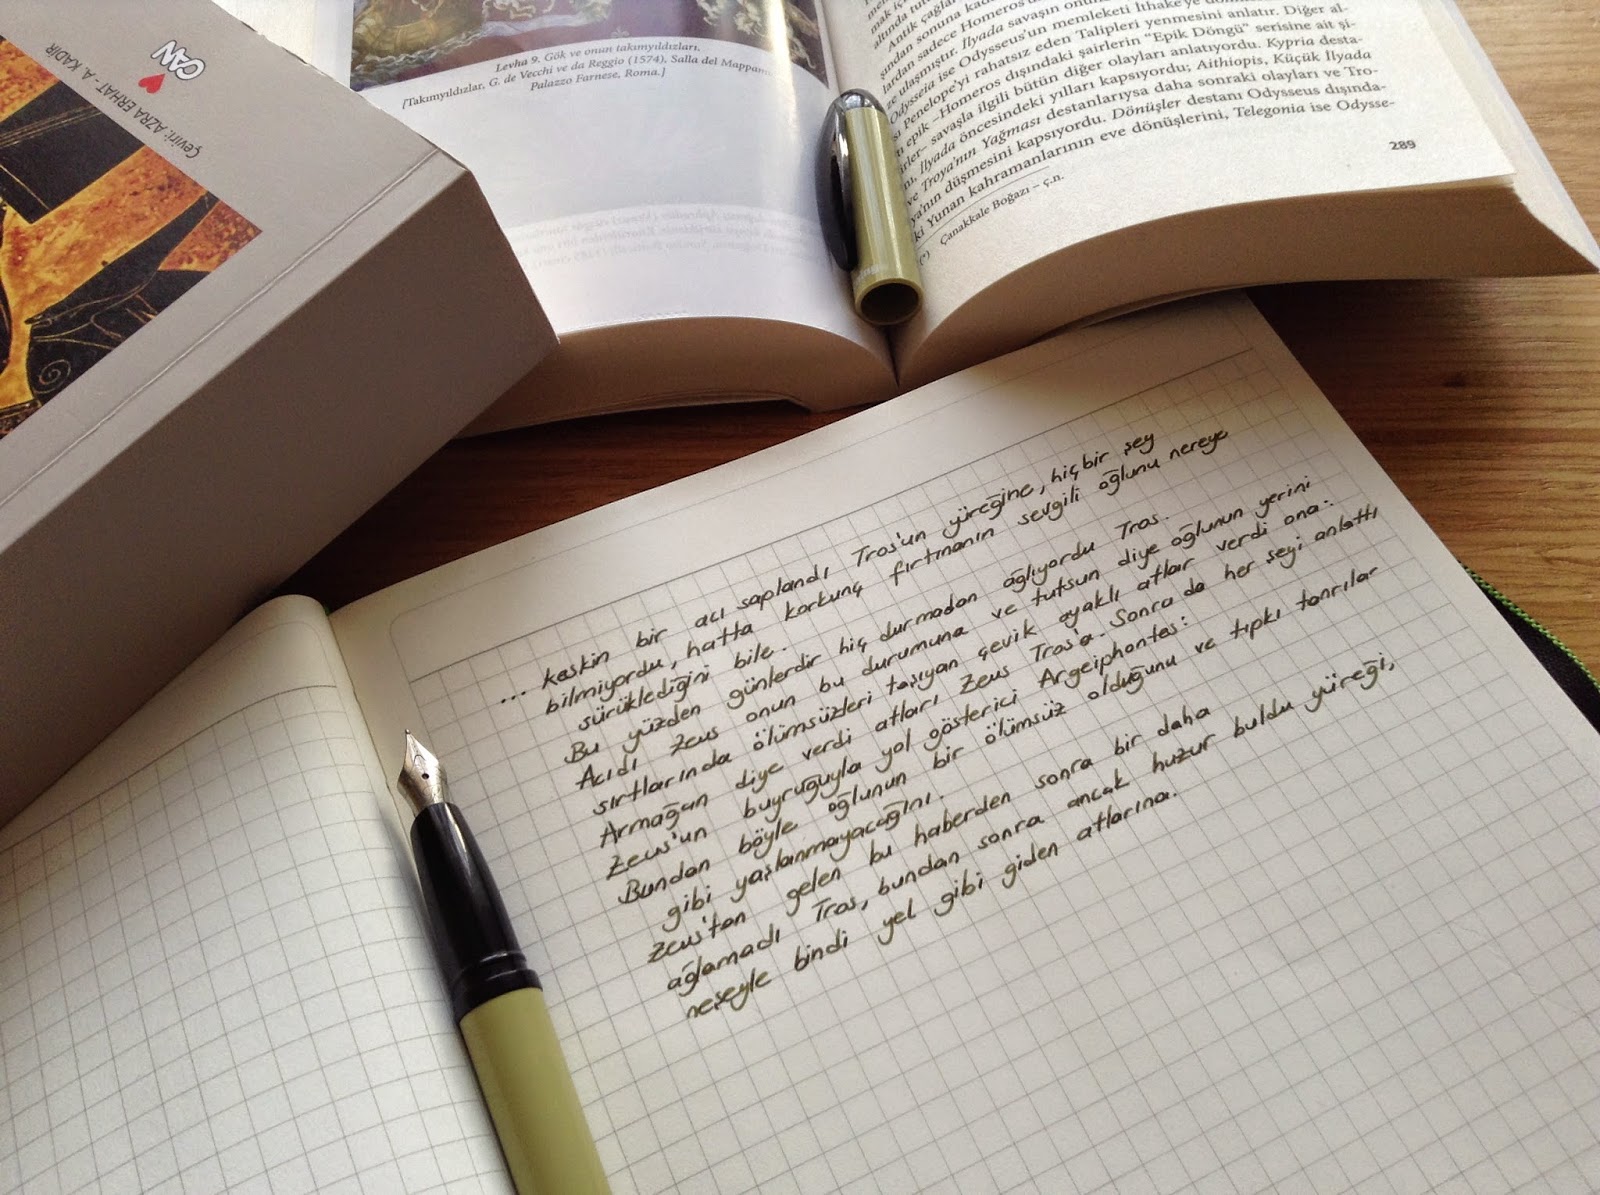 CAN
Çeviri: AZRA ERHAT - A. KADİR
Levha 9. Gök ve onun takımyıldızları.
[Takımyıldızlar, G. de Vecchi ve da Reggio (1574), Salla del Mappam
Palazzo Farnese, Roma.]
Antik çağlar
ından sonuna kada
lardan sadece Homeros'un
ze ulaşmıştır. İlyada savaşın onun
Odysseia ise Odysseus'un memleketi İthake'ye dönm
Penelope'yi rahatsız eden Talipleri yenmesini anlatır. Diğer al-
epik –Homeros dışındaki şairlerin "Epik Döngü" serisine ait şi-
irler– savaşla ilgili bütün diğer olayları anlatıyordu. Kypria desta-
nı, İlyada öncesindeki yılları kapsıyordu; Aithiopis, Küçük İlyada
ve Troya'nın Yağması destanlarıysa daha sonraki olayları ve Tro-
ya'nın düşmesini kapsıyordu. Dönüşler destanı Odysseus dışında-
ki Yunan kahramanlarının eve dönüşlerini, Telegonia ise Odysse-
(*) Çanakkale Boğazı – ç.n.
289
... keskin bir acı saplandı Tros'un yüreğine, hiçbir şey
bilmiyordu, hatta korkunç fırtınanın sevgili oğlunu nereye
sürüklediğini bile.
Bu yüzden günlerdir hiç durmadan ağlıyordu Tros.
Acıdı Zeus onun bu durumuna ve tutsun diye oğlunun yerini
sırtlarında ölümsüzleri taşıyan çevik ayaklı atlar verdi ona:
Armağan diye verdi atları Zeus Tros'a. Sonra da her şeyi anlattı
Zeus'un buyruğuyla yol gösterici Argeiphontes:
Bundan böyle oğlunun bir ölümsüz olduğunu ve tıpkı tanrılar
gibi yaşlanmayacağını.
Zeus'tan gelen bu haberden sonra bir daha
ağlamadı Tros, bundan sonra ancak huzur buldu yüreği,
neşeyle bindi yel gibi giden atlarına.